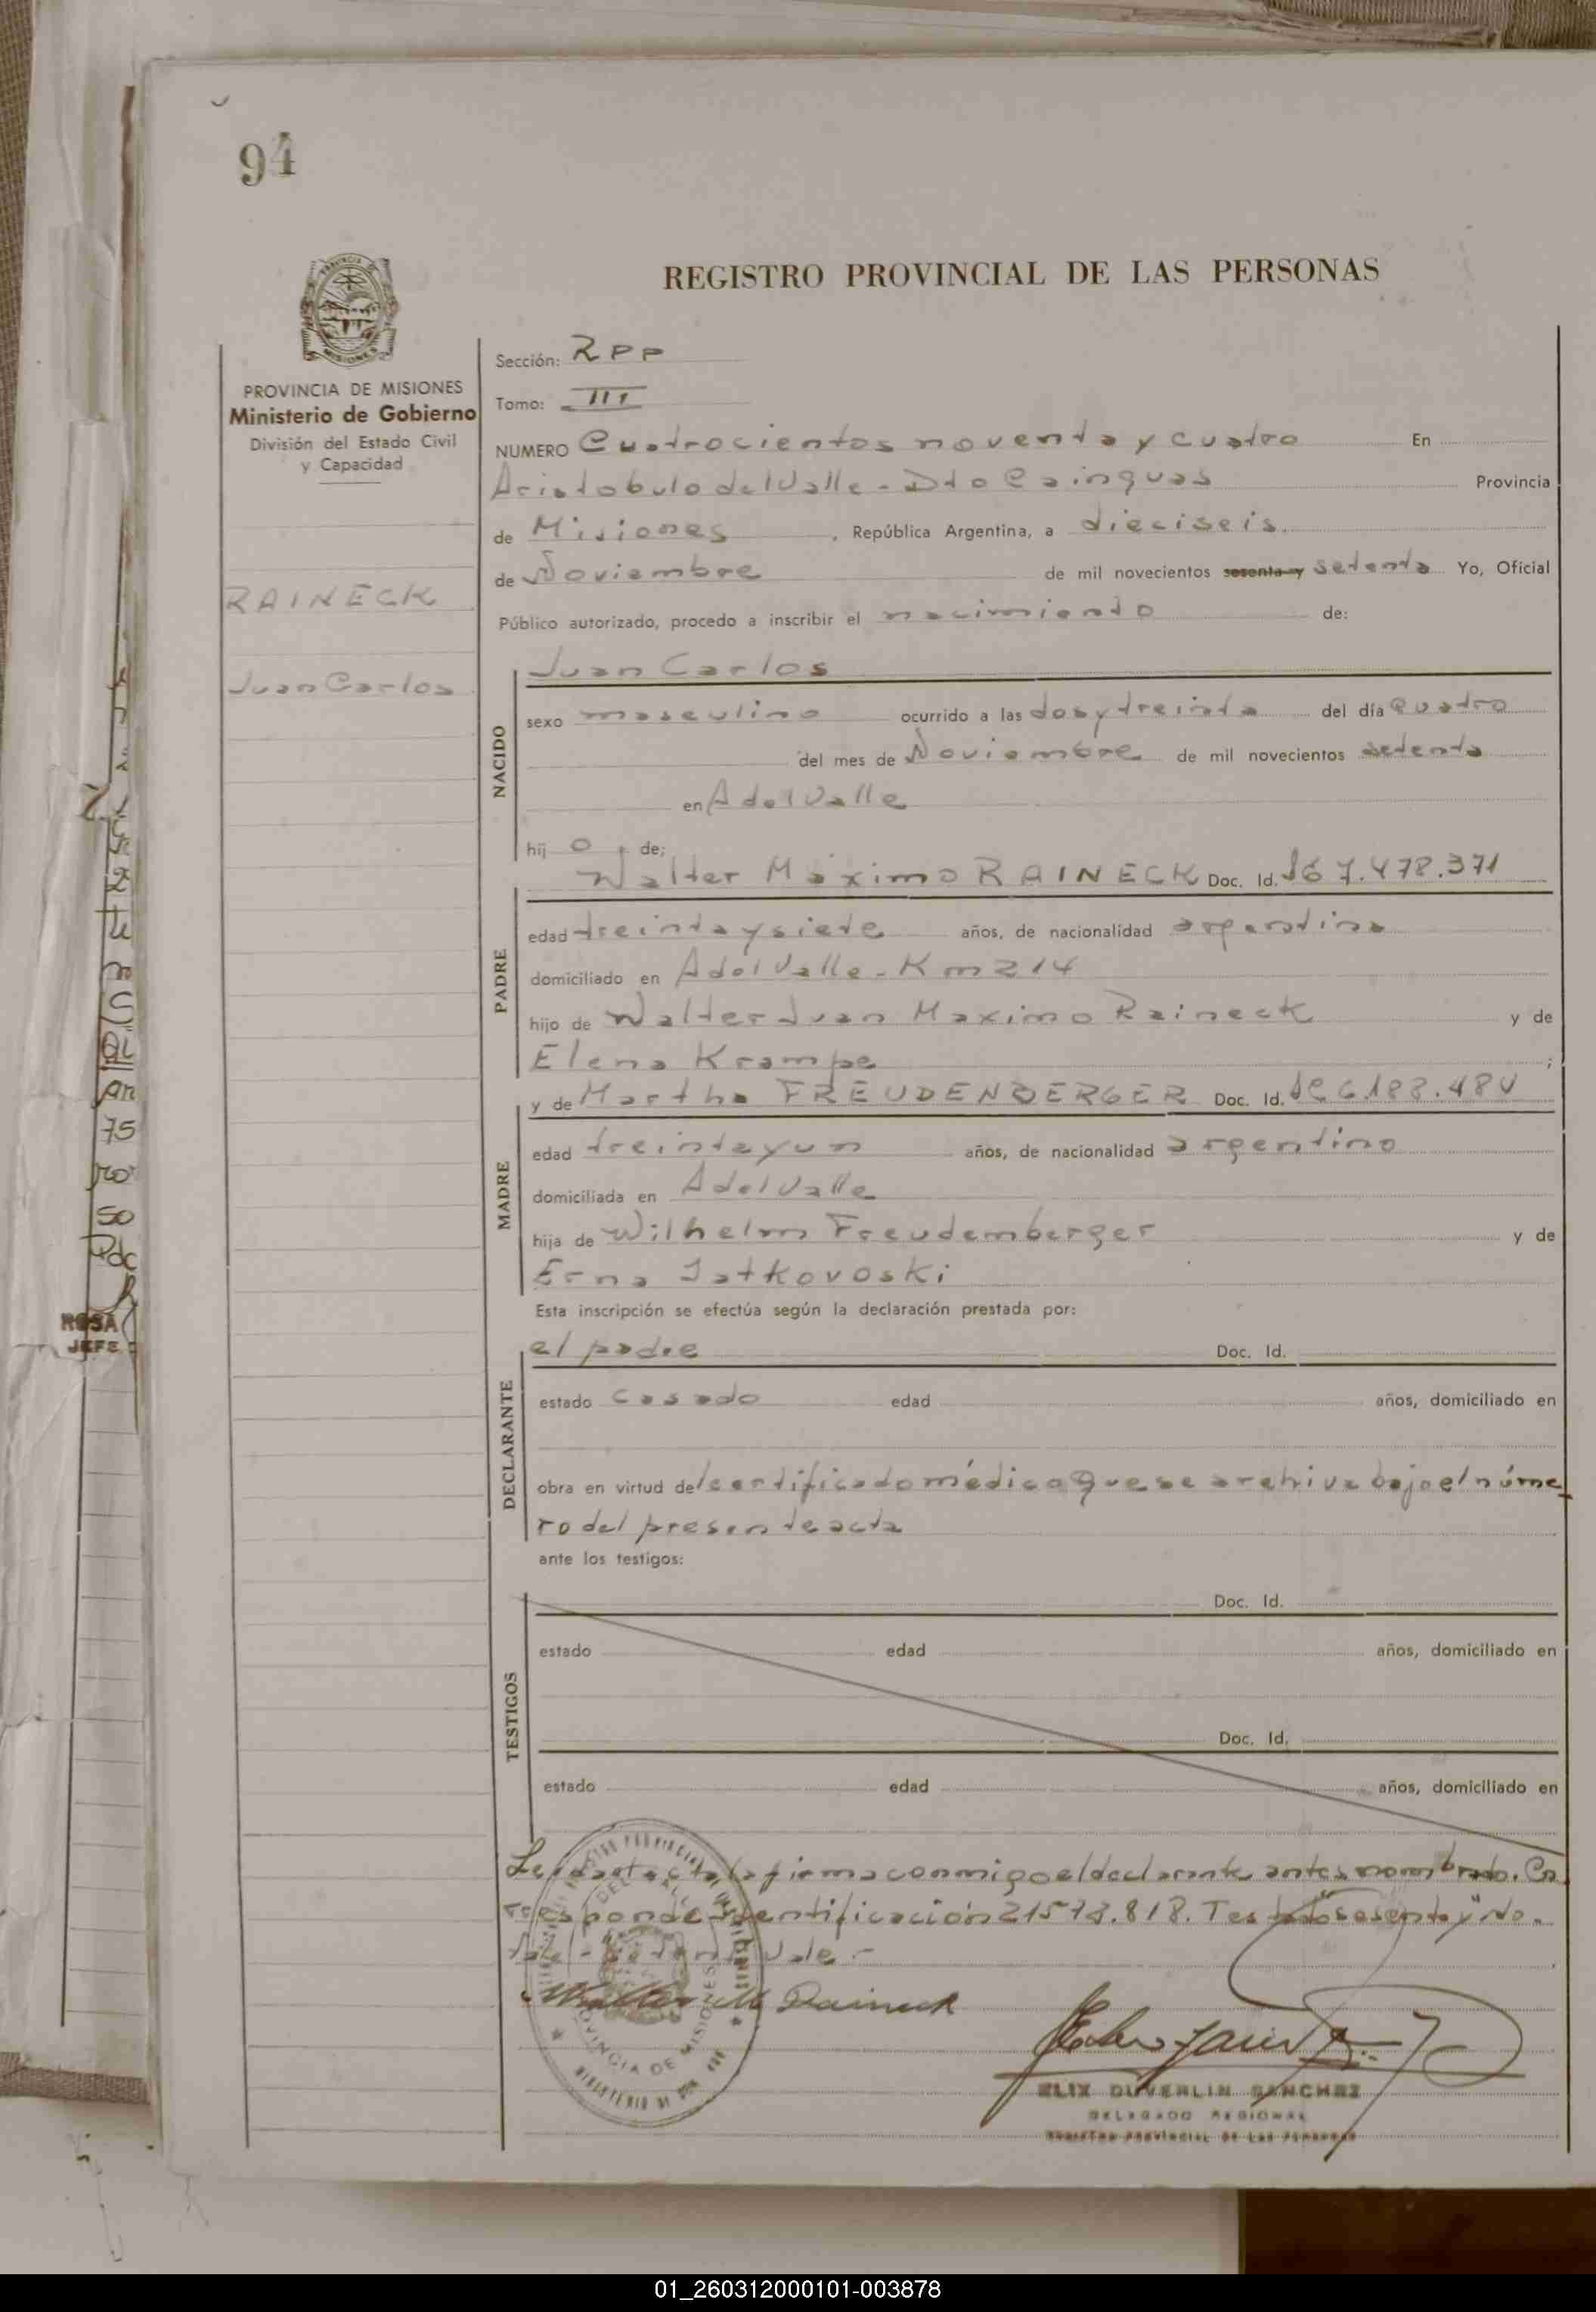 94
REGISTRO PROVINCIAL DE LAS PERSONAS
PROVINCIA DE MISIONES
Ministerio de Gobierno
División del Estado Civil
y Capacidad
RAINECK
Juan Carlos
Sección: RPP
Tomo: III
NUMERO Cuatrocientos noventa y cuatro En
Aristobulo del Valle - Dto Cainguas Provincia
de Misiones, República Argentina, a dieciseis.
de Noviembre de mil novecientos sesenta y setenta Yo, Oficial
Público autorizado, procedo a inscribir el nacimiento de:
NACIDO
Juan Carlos
sexo masculino ocurrido a las dos y treinta del día Cuatro
del mes de Noviembre de mil novecientos setenta
en A del Valle
hij o de;
Walter Máximo RAINECK Doc. Id. 7.478.371
PADRE
edad treinta y siete años, de nacionalidad argentina
domiciliado en A del Valle - Km 214
hijo de Walter Juan Maximo Raineck y de
Elena Krampe ;
y de Martha FREUDENBERGER Doc. Id. 6.188.484
MADRE
edad treinta y un años, de nacionalidad argentino
domiciliada en A del Valle
hija de Wilhelm Freudemberger y de
Erna Jatkovoski
Esta inscripción se efectúa según la declaración prestada por:
DECLARANTE
el padre Doc. Id.
estado casado edad años, domiciliado en
obra en virtud del certificado médico que se archiva bajo el núme
ro del presente acta
ante los testigos:
TESTIGOS
Doc. Id.
estado edad años, domiciliado en
Doc. Id.
estado edad años, domiciliado en
Leida el acta la firma conmigo el declarante antes nombrado. Co
rresponde identificación 21573.818. Testado "sesenta y" No.
Vale - setenta Vale -
Walter M Raineck
ELIX DUVERLIN SANCHEZ
DELEGADO REGIONAL
REGISTRO PROVINCIAL DE LAS PERSONAS
PROVINCIA DE MISIONES
ROSA
JEFE
75
50
01_260312000101-003878